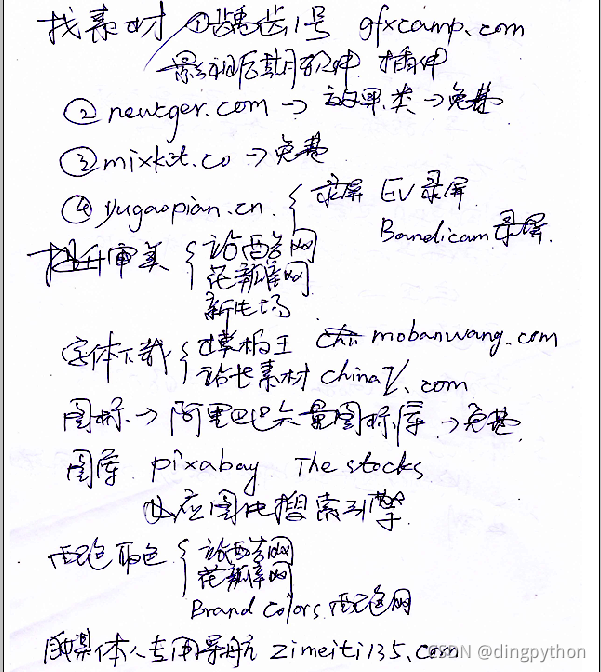 找素材 ①龋齿1号 gfxcamp.com
影视后期软件 插件
②newtger.com→效果类→免费
③mixkit.co→免费
④yugaopian.cn. 录屏 EV录屏
Bandicam录屏
提升审美 站酷网
花瓣网
新片场
字体下载 模板王 mobanwang.com
站长素材 chinaZ.com
图标→阿里巴巴矢量图标库→免费
图库 pixabay The stocks
必应图片搜索引擎
配色取色 站酷网
花瓣网
Brand Colors配色网
自媒体人专用导航 zimeiti135.com
CSDN @dingpython